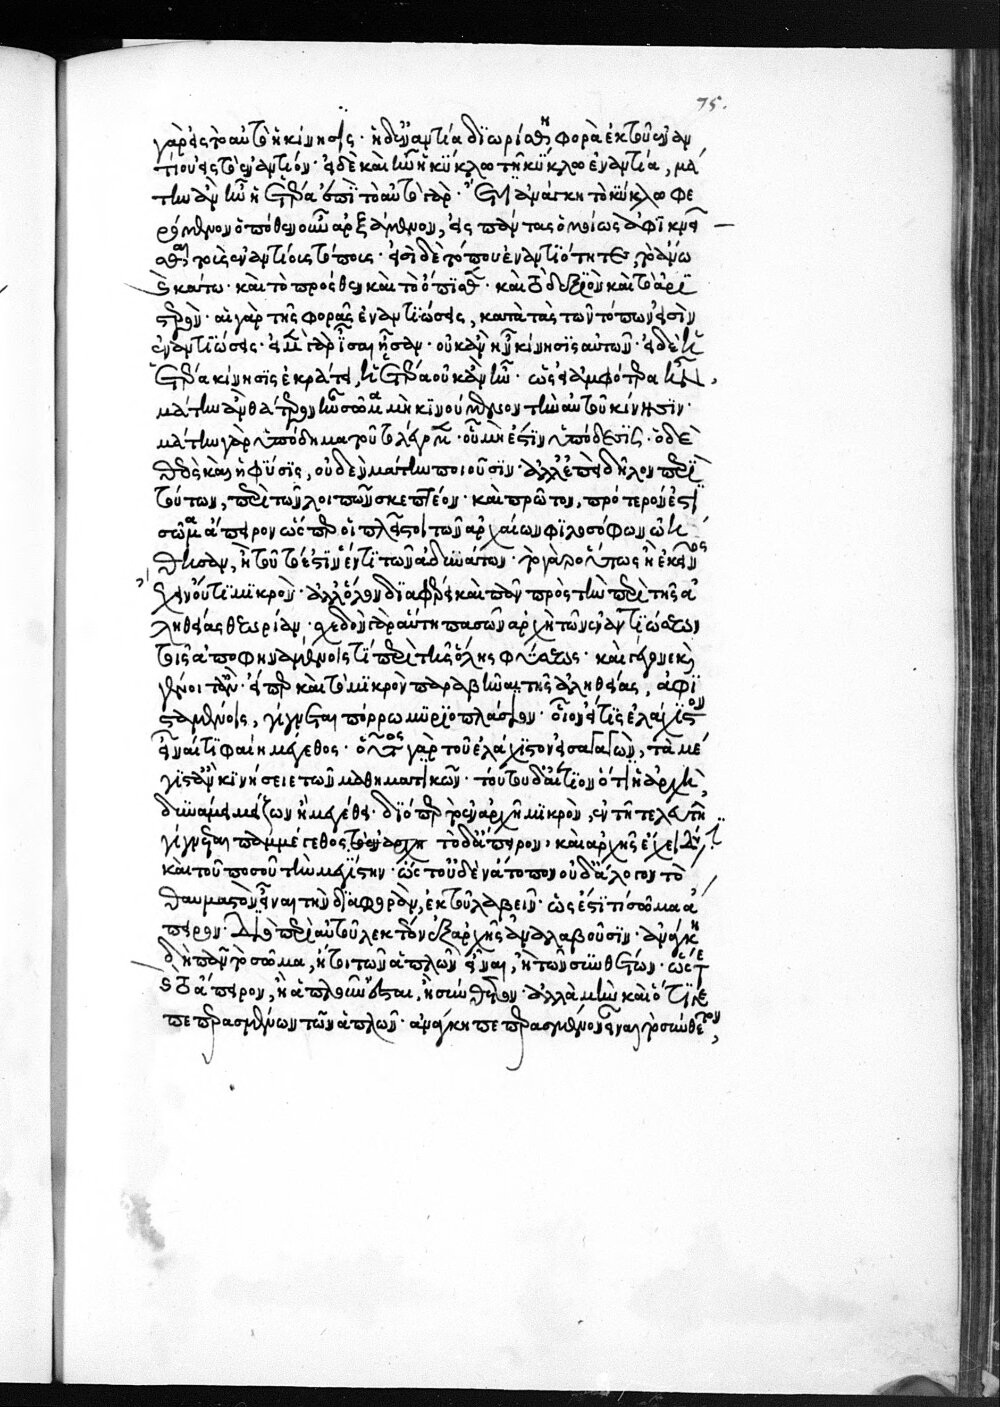 γὰρ εἰς τὸ αὐτὸ ἡ κίνησις· ἡ δ' ἐναντία διωρίσθη φορὰ ἐκ τοῦ ἐναν
τίου εἰς τὸ ἐναντίον· εἰ δὲ καὶ ἦν ἡ κύκλω τῆ κύκλω ἐναντία, μά
την ἂν ἦν ἡ ἑτέρα ἐπὶ τὸ αὐτὸ γὰρ· ἔτι ἀνάγκη τὸ κύκλω φε
ρόμενον ὁπόθεν οὖν ἀρξάμενον, εἰς πάντας ὁμοίως ἀφικνεῖ
σθαι τοῖς ἐναντίοις τόποις· εἰσὶ δὲ τόπου ἐναντιότητες, τὸ ἄνω
καὶ κάτω· καὶ τὸ πρόσθεν καὶ τὸ ὄπισθεν· καὶ τὸ δεξιὸν καὶ τὸ ἀρι
στερὸν· αἱ γὰρ τῆς φορᾶς ἐναντιώσεις, κατὰ τὰς τῶν τόπων εἰσὶν
ἐναντιώσεις· εἰ μὲν γὰρ ἴσαι ἦσαν· οὐκ ἂν ἦν κίνησις αὐτῶν· εἰ δὲ ἡ
ἑτέρα κίνησις ἐκράτει, ἡ ἑτέρα οὐκ ἂν ἦν· ὥστ' εἰ ἀμφότερα ἦν,
μάτην ἂν θάτερον ἦν σῶμα μὴ κινούμενον τὴν αὐτοῦ κίνησιν·
μάτην γὰρ ὑπόδημα τοῦτο λέγομεν· οὗ μὴ ἐστὶν ὑπόδεσις· ὁ δὲ
θεὸς καὶ ἡ φύσις, οὐδὲν μάτην ποιοῦσιν· ἀλλ' ἐπεὶ δῆλον περὶ
τούτων, περὶ τῶν λοιπῶν σκεπτέον· καὶ πρῶτον, πρότερον ἐστὶ
σῶμα ἄπειρον ὥσπερ οἱ πλεῖστοι τῶν ἀρχαίων φιλοσόφων ὠή
θησαν, ἢ τοῦτ' ἐστὶν ἕν τι τῶν ἀδυνάτων· τὸ γὰρ οὕτως ἢ ἐκείνως
ἔχειν οὔτι μικρὸν· ἀλλ' ὅλον διαφέρει καὶ πᾶν πρὸς τὴν περὶ τῆς ἀ
ληθείας θεωρίαν· σχεδὸν γὰρ αὕτη πασῶν ἀρχὴ τῶν ἐναντιώσεων
τοῖς ἀποφηναμένοις τι περὶ τῆς ὅλης φύσεως· καὶ γέγονε καὶ
γένοιτ' ἂν· εἴπερ καὶ τὸ μικρὸν παραβῆναι τῆς ἀληθείας, ἀφι
σταμένοις, γίγνεται πόρρω μυριοπλάσιον· οἷον εἴ τις ἐλάχιστον
εἶναί τι φαίη μέγεθος· οὗτος γὰρ τοὐλάχιστον εἰσαγαγὼν, τὰ μέ
γιστ' ἂν κινήσειε τῶν μαθηματικῶν· τούτου δ' αἴτιον ὅτι ἡ ἀρχὴ,
δυνάμει μείζων ἢ μεγέθει· διόπερ τὸ ἐν ἀρχῆ μικρὸν, ἐν τῆ τελευτῆ
γίγνεται παμμέγεθος τὸ δ' ἄπειρον, καὶ ἀρχῆς ἔχει δύναμιν
καὶ τοῦ ποσοῦ τὴν μεγίστην· ὥστ' οὐδὲν ἄτοπον οὐδ' ἄλογον τὸ
θαυμαστὸν εἶναι τὴν διαφορὰν, ἐκ τοῦ λαβεῖν· ὡς ἐστί τι σῶμα ἄ
πειρον· διὸ περὶ αὐτοῦ λεκτέον ἐξ ἀρχῆς ἀναλαβοῦσιν· ἀνάγκη
δὴ πᾶν τὸ σῶμα, ἤτοι τῶν ἁπλῶν εἶναι, ἢ τῶν συνθέτων· ὥστε
καὶ τὸ ἄπειρον, ἢ ἁπλοῦν ἔσται, ἢ σύνθετον· ἀλλὰ μὴν καὶ ὅτι γε
πεπερασμένων τῶν ἁπλῶν· ἀνάγκη πεπερασμένον εἶναι τὸ σύνθετον,